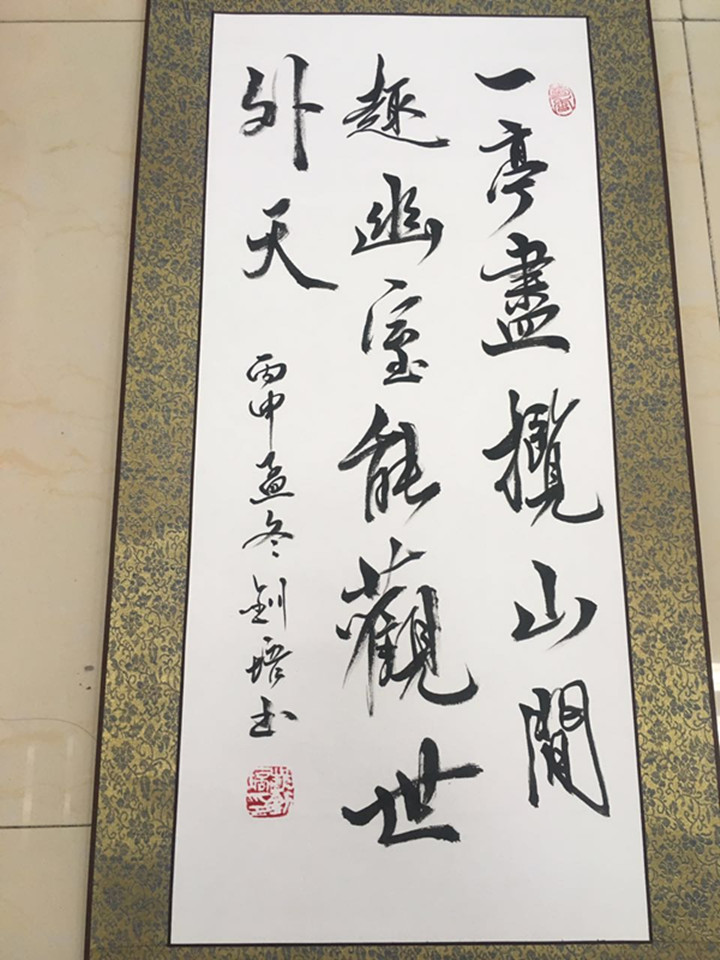 一亭盡攬山間
趣幽室能觀世
外天
丙申孟冬釗培书